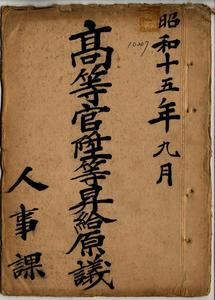 昭和十五年九月
10007
高等官陞等昇給原議
人事課